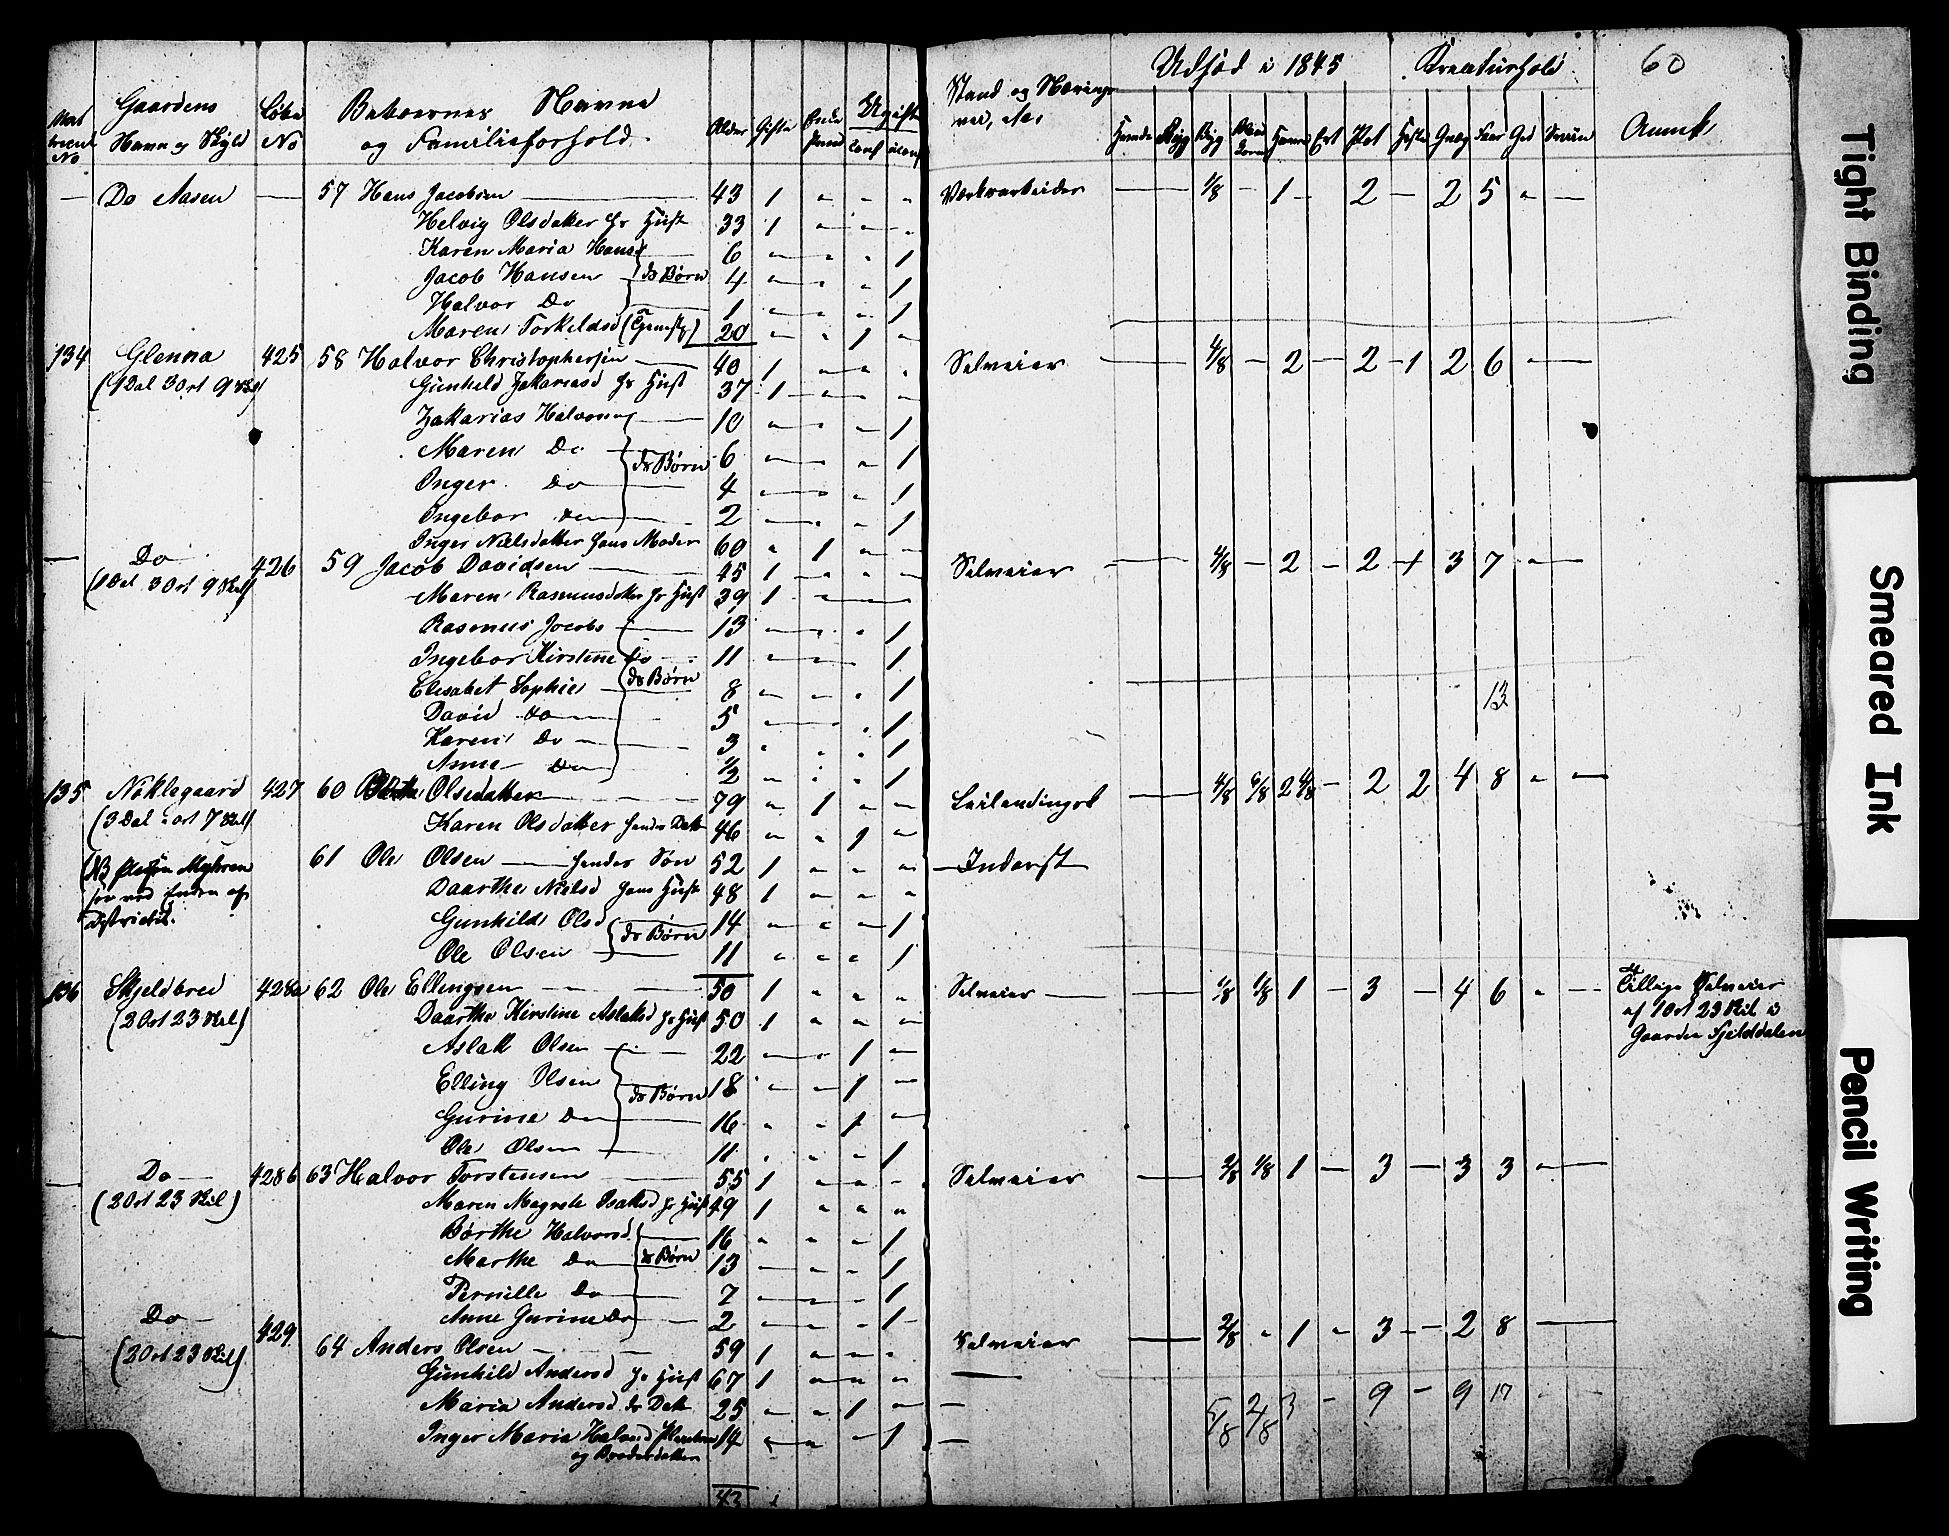 60
Udsæd i 1845 Kreaturhold
Gaardens Løbe Beboernes Navne Ugifte Stand og Nærings
No Navn og Skyld No og Familieforhold Alder Gifte Hvede Rug Byg Havre Ert Pot Heste Faar Sviin Anmk
Do Aasen — 57 Hans Jacobsen — 43 1 " " " 1/8 - 1 - 2 - 2 5 " —
Helvig Olsdatter hs Hust 33 1
Karen Maria Hansd — 6 1
Jacob Hansen — ds Børn 4 1
Halvor Do 1 1
Maren Torkeldsd 20 1
134 Glenna 425 58 Halvor Christophersen — 40 1 Selveier 4/8 - 2 - 2 - 1 2 6 " —
(1 Dal 3 Ort 9 Skil) Gunhild Zakariasd hs Hust 37 1
Zakarias Halvorsen — 10 1
Maren Do 6 1
Inger Do ds Børn 4 1
Ingebor do 2 1
Inger Nielsdatter hans Moder 60 1
— Do 426 59 Jacob Davidsen — 45 1 Selveier 4/8 - 2 - 2 + 3 7 " —
(1 Dal 3 Ort 9 Skil) Maren Rasmusdatter hs Hust 39 1
Rasmus Jacobs — 13 1
Ingebor Kirstine do 11 1
Elisabet Sophie — ds Børn 8 1
13
David do 5 1
Karen Do — 3 1
Anne do 1/2 1
135 Noklegaard 427 60 Olsdatter — 79 1 Leilændingsk 4/8 6/8 2 4/8 - 2 2 4 8 " —
(3 Dal " ort 7 Skil) Karen Olsdatter hendes Datt 46 1
61 Ole Olsen — hendes Søn 52 1 — Inderst
(NB
ved Enden af
Districtet. Daarthe Nielsd hans Hust 48 1
Gunhild Olsd 14 1
Ole Olsen — ds Børn 11 1
136 Skjeldbred 428a 62 Ole Ellingsen — 50 1 Selveier — 1/8 1/8 1 - 3 - 4 6 " — Tillige Selveier
af 1 Ort 23 Skil i
Gaarden Fjelddalen
(2 Ort 23 Skil) Daarthe Kirstine Aslaksd hs Hust 50 1
Aslak Olsen — 22 1
Elling Olsen ds Børn 18 1
Gurine do 16 1
Ole Olsen — 11 1
— Do — 428b 63 Halvor Torstensen — 55 1 Selveier 2/8 1/8 1 - 3 - 3 3 " —
(2 Ort 23 Skil) Maren Magrete Isaksd hs Hust 49 1
Børthe Halvorsd 16 1
Marthe do ds Børn 13 1
Pernille Do 7 1
Anne Gurine Do 2 1
— Do — 429 64 Anders Olsen — 59 1 Selveier 2/8 " 1 " 3 - - 2 8 —
(2 Ort 23 Skil) Gunhild Andersd hs Hust 67 1 —
Maria Andersd ds Datt 25 1 — 5/8 2/8 3 - 9 - 9 17
Inger Maria Halvorsd 14 1 —
og Broderdatter
43
Tight Binding
Smeared Ink
Pencil Writing